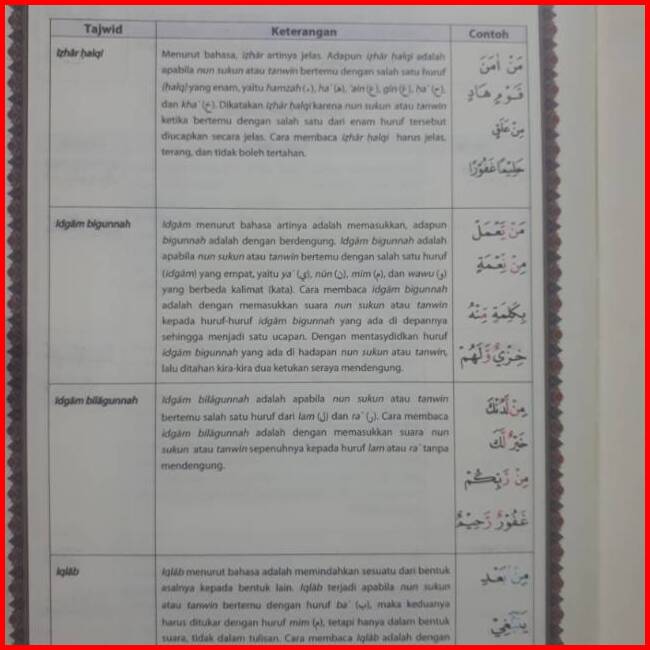 Tajwid Keterangan Contoh
Iẓhār ḥalqi
Menurut bahasa, iẓhār artinya jelas. Adapun iẓhār ḥalqi adalah
apabila nun sukun atau tanwin bertemu dengan salah satu huruf
(ḥalq) yang enam, yaitu hamzah (ء), ha` (ھ), 'ain (ع), gin (غ), ḥa` (ح),
dan kha` (خ). Dikatakan iẓhār ḥalqi karena nun sukun atau tanwin
ketika bertemu dengan salah satu dari enam huruf tersebut
diucapkan secara jelas. Cara membaca iẓhār ḥalqi harus jelas,
terang, dan tidak boleh tertahan.
مَنْ اٰمَنَ
قَوْمٍ هَادٍ
مِنْ عَلَقٍ
حَلِيْمًا غَفُوْرًا
Idgām bigunnah
Idgām menurut bahasa artinya adalah memasukkan, adapun
bigunnah adalah dengan berdengung. Idgām bigunnah adalah
apabila nun sukun atau tanwin bertemu dengan salah satu huruf
(idgām) yang empat, yaitu ya` (ي), nūn (ن), mim (م), dan wawu (و)
yang berbeda kalimat (kata). Cara membaca idgām bigunnah
adalah dengan memasukkan suara nun sukun atau tanwin
kepada huruf-huruf idgām bigunnah yang ada di depannya
sehingga menjadi satu ucapan. Dengan mentasydidkan huruf
idgām bigunnah yang ada di hadapan nun sukun atau tanwin,
lalu ditahan kira-kira dua ketukan seraya mendengung.
مَنْ يَّعْمَلْ
مِنْ نِّعْمَةٍ
بِكَلِمَةٍ مِّنْهُ
خِزْيٌ وَّلَهُمْ
Idgām bilāgunnah
Idgām bilāgunnah adalah apabila nun sukun atau tanwin
bertemu salah satu huruf dari lam (ل) dan ra` (ر). Cara membaca
idgām bilāgunnah adalah dengan memasukkan suara nun
sukun atau tanwin sepenuhnya kepada huruf lam atau ra` tanpa
mendengung.
مِنْ لَّدُنْكَ
خَيْرٌ لَّكَ
مِنْ رَّبِّكُمْ
غَفُوْرٌ رَّحِيْمٌ
Iqlāb
Iqlāb menurut bahasa adalah memindahkan sesuatu dari bentuk
asalnya kepada bentuk lain. Iqlāb terjadi apabila nun sukun
atau tanwin bertemu dengan huruf ba` (ب), maka keduanya
harus ditukar dengan huruf mim (م), tetapi hanya dalam bentuk
suara, tidak dalam tulisan. Cara membaca Iqlāb adalah dengan
مِنْ بَعْدِ
يَنْۢبَغِيْ